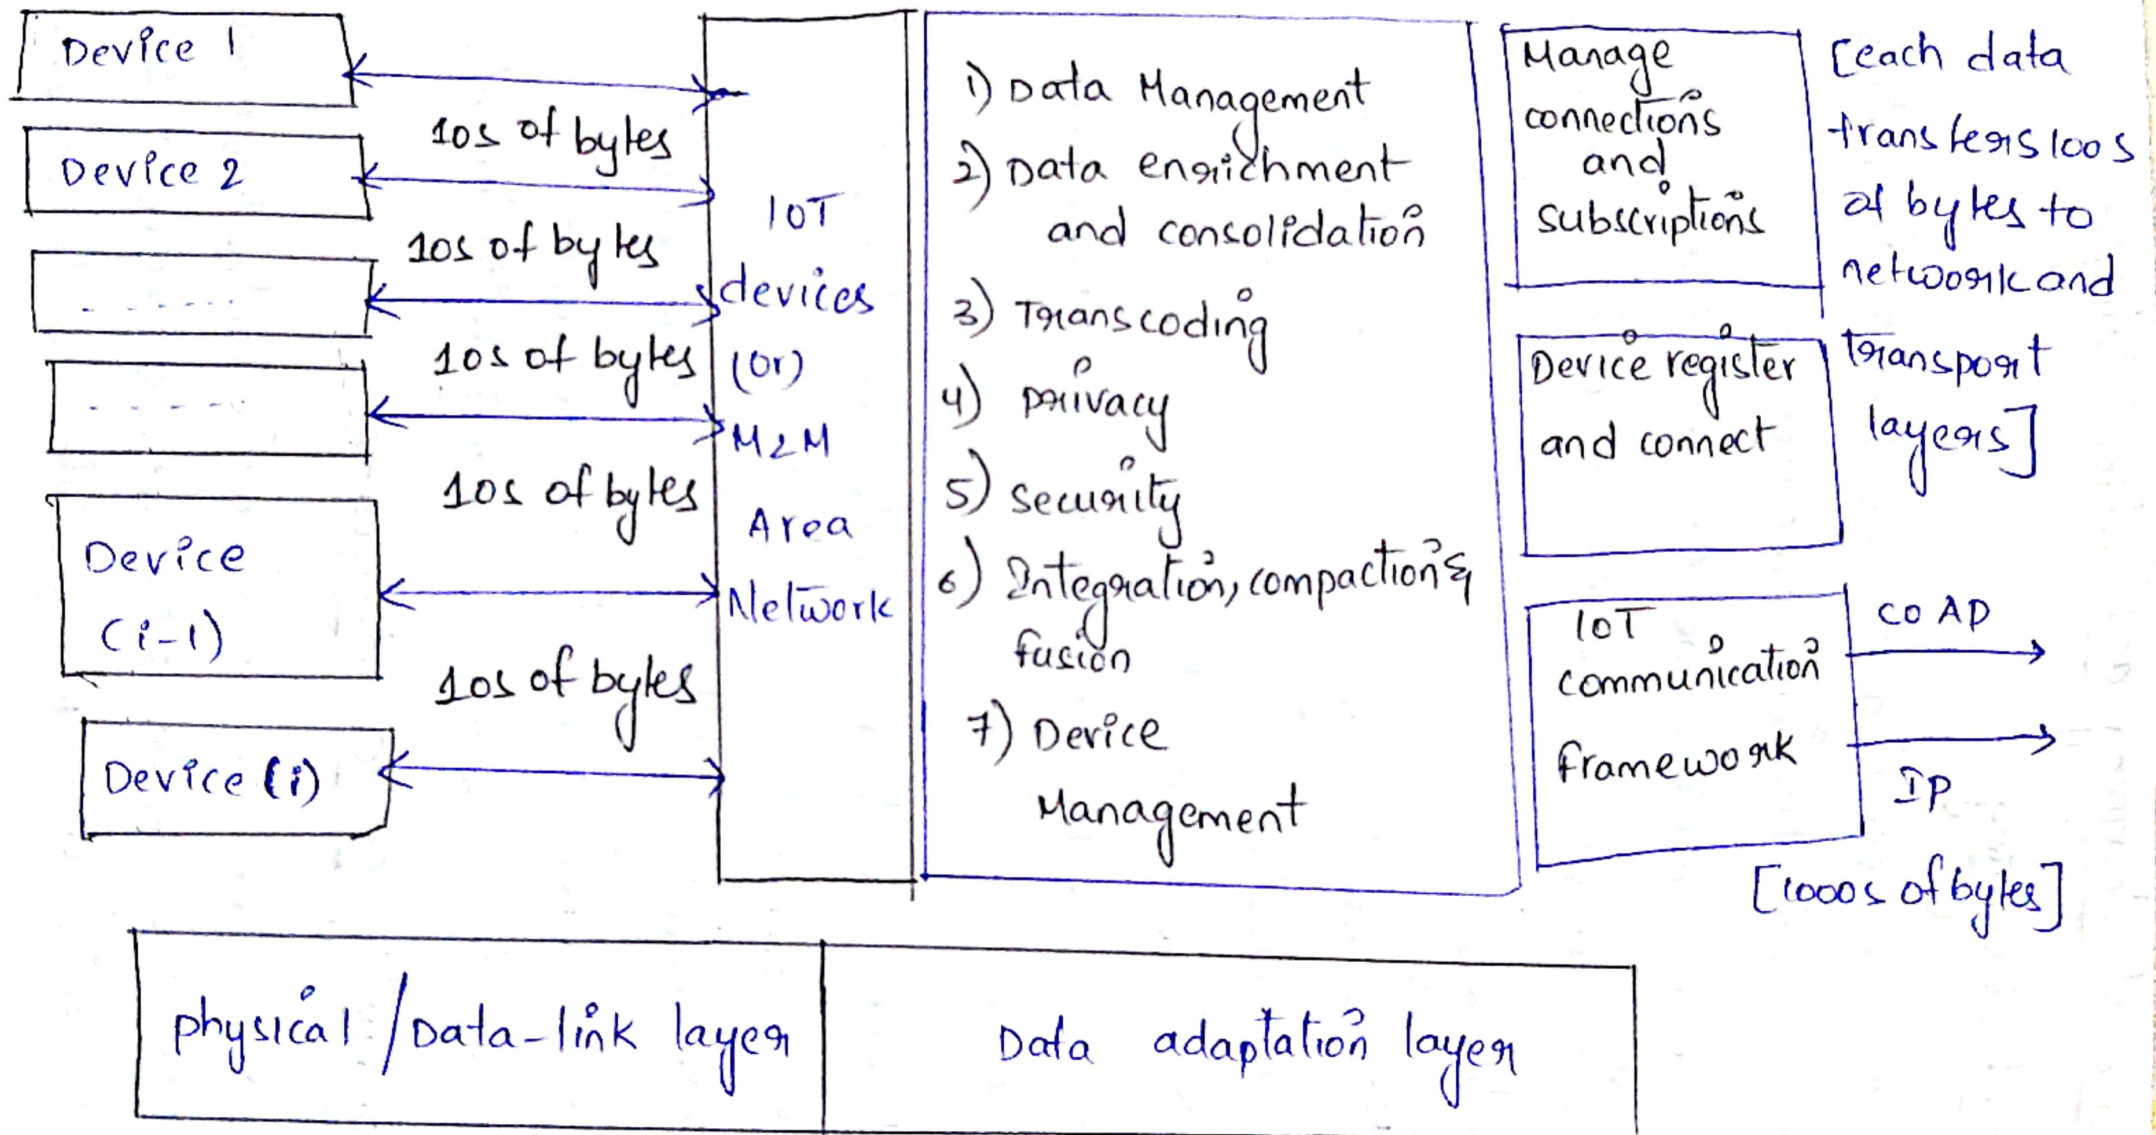 Device 1
10s of bytes
Device 2
10s of bytes
.......
10s of bytes
.....
10s of bytes
Device
(i-1)
10s of bytes
Device (i)
IOT
devices
(or)
M2M
Area
Network
1) Data Management
2) Data enrichment
and consolidation
3) Transcoding
4) privacy
5) security
6) Integration, compaction &
fusion
7) Device
Management
Manage
connections
and
subscriptions
Device register
and connect
IOT
communication
framework
[each data
transfers 100s
of bytes to
network and
transport
layers]
CO AP
IP
[1000s of bytes]
physical / Data-link layer
Data adaptation layer